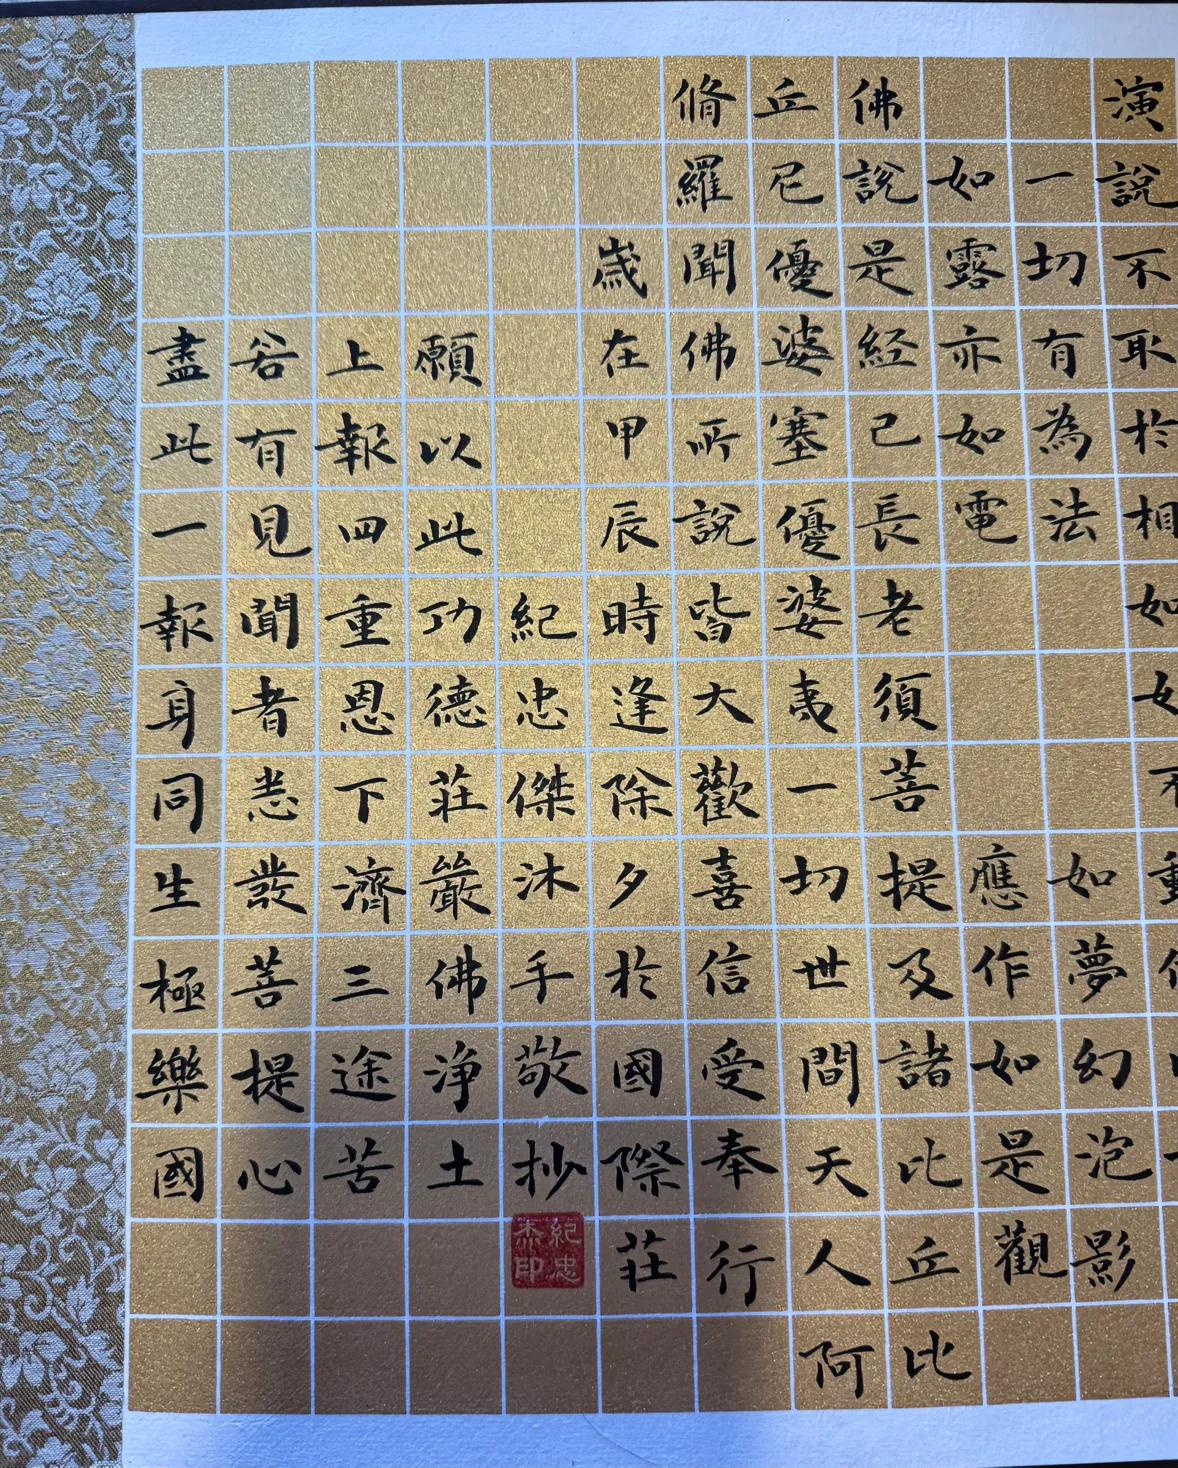 演說不取於相如如不動
一切有為法 如夢幻泡影
如露亦如電 應作如是觀
佛說是経已長老須菩提及諸比丘比
丘尼優婆塞優婆夷一切世間天人阿
脩羅聞佛所說皆大歡喜信受奉行
歲在甲辰時逢除夕於國際莊
紀忠傑沐手敬抄
紀忠杰印
願以此功德莊嚴佛浄土
上報四重恩下濟三途苦
若有見聞者悉發菩提心
盡此一報身同生極樂國